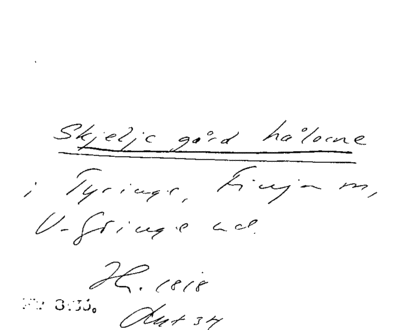 Skjelje gård hålorne
i Tyringe, Finja m,
V-Göinge hd.
Hn. 1818
Aut 34